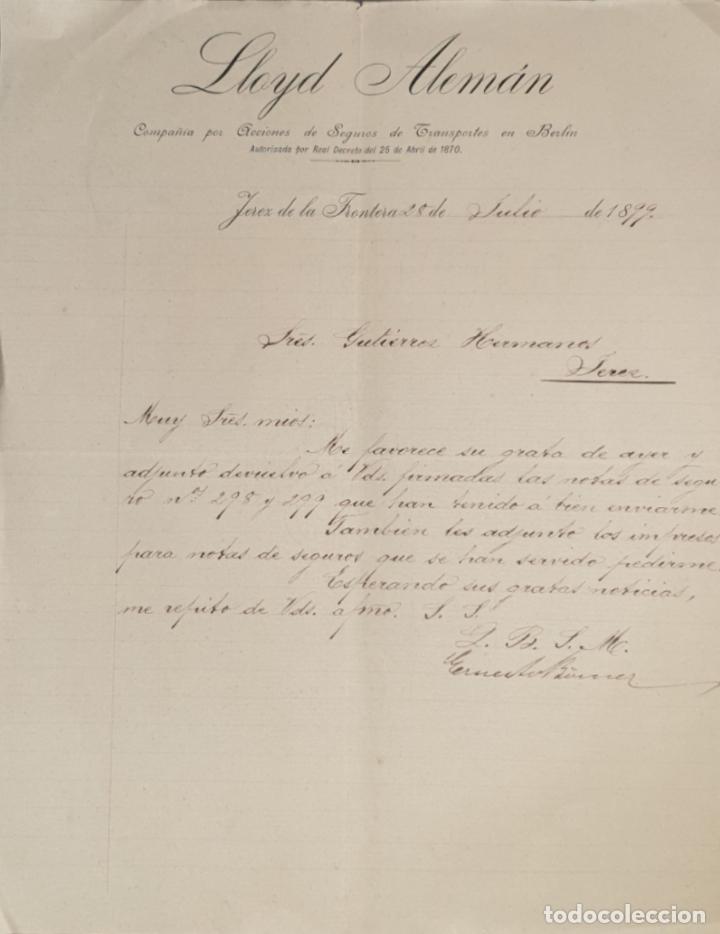 Lloyd Alemán
Compañía por Acciones de Seguros de Transportes en Berlín
Autorizada por Real Decreto del 25 de Abril de 1870.
Jerez de la Frontera 28 de Julio de 1899.
Sres. Gutierrez Hermanos
Jerez.
Muy Sres. mios:
Me favorece su grata de ayer y
adjunto devuelvo á Vds. firmadas las notas de segu
ro nos. 298 y 299 que han tenido á bien enviarme
Tambien les adjunto los impresos
para notas de seguros que se han servido pedirme.
Esperando sus gratas noticias,
me repito de Vds. afmo. S. S.
Q. B. S. M.
Ernesto
todocoleccion